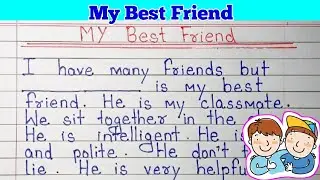 My Best Friend
MY Best Friend
I have many friends but
____________ is my best
friend. He is my classmate.
We sit together in the
He is intelligent. He is
and polite. He don't
lie. He is very helpful